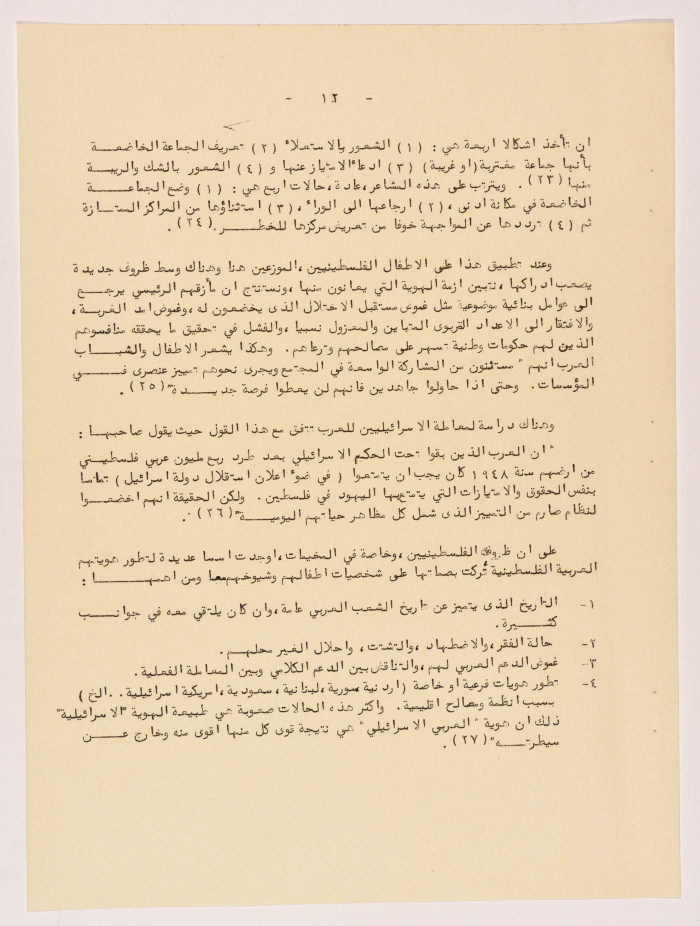 - ١٢ -
ان تأخذ اشكالا اربعة هي : (١) الشعور بالاستعلاء (٢) تعريف الجماعة الخاضعة
بأنها جماعة مغتربة (او غريبة) (٣) ادعاء الامتياز عنها و (٤) الشعور بالشك والريبة
منها (٢٣) . ويترتب على هذه المشاعر ،عادة ،حالات اربع هي : (١) وضع الجماعة
الخاضعة في مكانة ادنى ، (٢) ارجاعها الى الوراء ، (٣) استثناؤها من المراكز الممتازة
ثم (٤) ترددها عن المواجهة خوفا من تعريض مركزها للخطر . (٢٤) .
وعند تطبيق هذا على الاطفال الفلسطينيين ،الموزعين هنا وهناك وسط ظروف جديدة
يصعب ادراكها ، نتبين ازمة الهوية التي يعانون منها ،ونستنتج ان مأزقهم الرئيسي يرجع
الى عوامل بنائية موضوعية مثل غموض مستقبل الاحتلال الذى يخضعون له ،وغموض امد الغربة ،
والافتقار الى الاعداد التربوى المتباين والمعزول نسبيا ،والفشل في تحقيق ما يحققه منافسوهم
الذين لهم حكومات وطنية تسهر على مصالحهم وترعاهم . وهكذا يشعر الاطفال والشباب
العرب انهم " مستثنون من المشاركة الواسعة في المجتمع ويجرى نحوهم تمييز عنصرى في
المؤسسات . وحتى اذا حاولوا جاهدين فانهم لن يعطوا فرصة جديدة " (٢٥) .
وهناك دراسة لمعاملة الاسرائيليين للعرب تتفق مع هذا القول حيث يقول صاحبها :
" ان العرب الذين بقوا تحت الحكم الاسرائيلي بعد طرد ربع مليون عربي فلسطيني
من ارضهم سنة ١٩٤٨ كان يجب ان يتمتعوا ( في ضوء اعلان استقلال دولة اسرائيل ) تماما
بنفس الحقوق والامتيازات التي يتمتع بها اليهود في فلسطين . ولكن الحقيقة انهم اخضعوا
لنظام صارم من التمييز الذى شمل كل مظاهر حياتهم اليومية " (٢٦) .
على ان ظروف الفلسطينيين ،وخاصة في المخيمات ،اوجدت اسسا عديدة لتطور هويتهم
العربية الفلسطينية تركت بصماتها على شخصيات اطفالهم وشيوخهم معا ومن اهمها :
١- التاريخ الذى يتميز عن تاريخ الشعب العربي عامة ،وان كان يلتقي معه في جوانب
كثيرة .
٢- حالة الفقر ،والاضطهاد ،والتشتت ، واحلال الغير محلهم .
٣- غموض الدعم العربي لهم ،والتناقض بين الدعم الكلامي وبين المعاملة الفعلية .
٤- تطور هويات فرعية او خاصة ( اردنية سورية ،لبنانية ، سعودية ، امريكية اسرائيلية . .الخ )
بسبب انظمة ومصالح اقليمية . واكثر هذه الحالات صعوبة هي طبيعة الهوية "الاسرائيلية"
ذلك ان هوية " العربي الاسرائيلي " هي نتيجة قوى كل منها اقوى منه وخارج عن
سيطرته " (٢٧) .